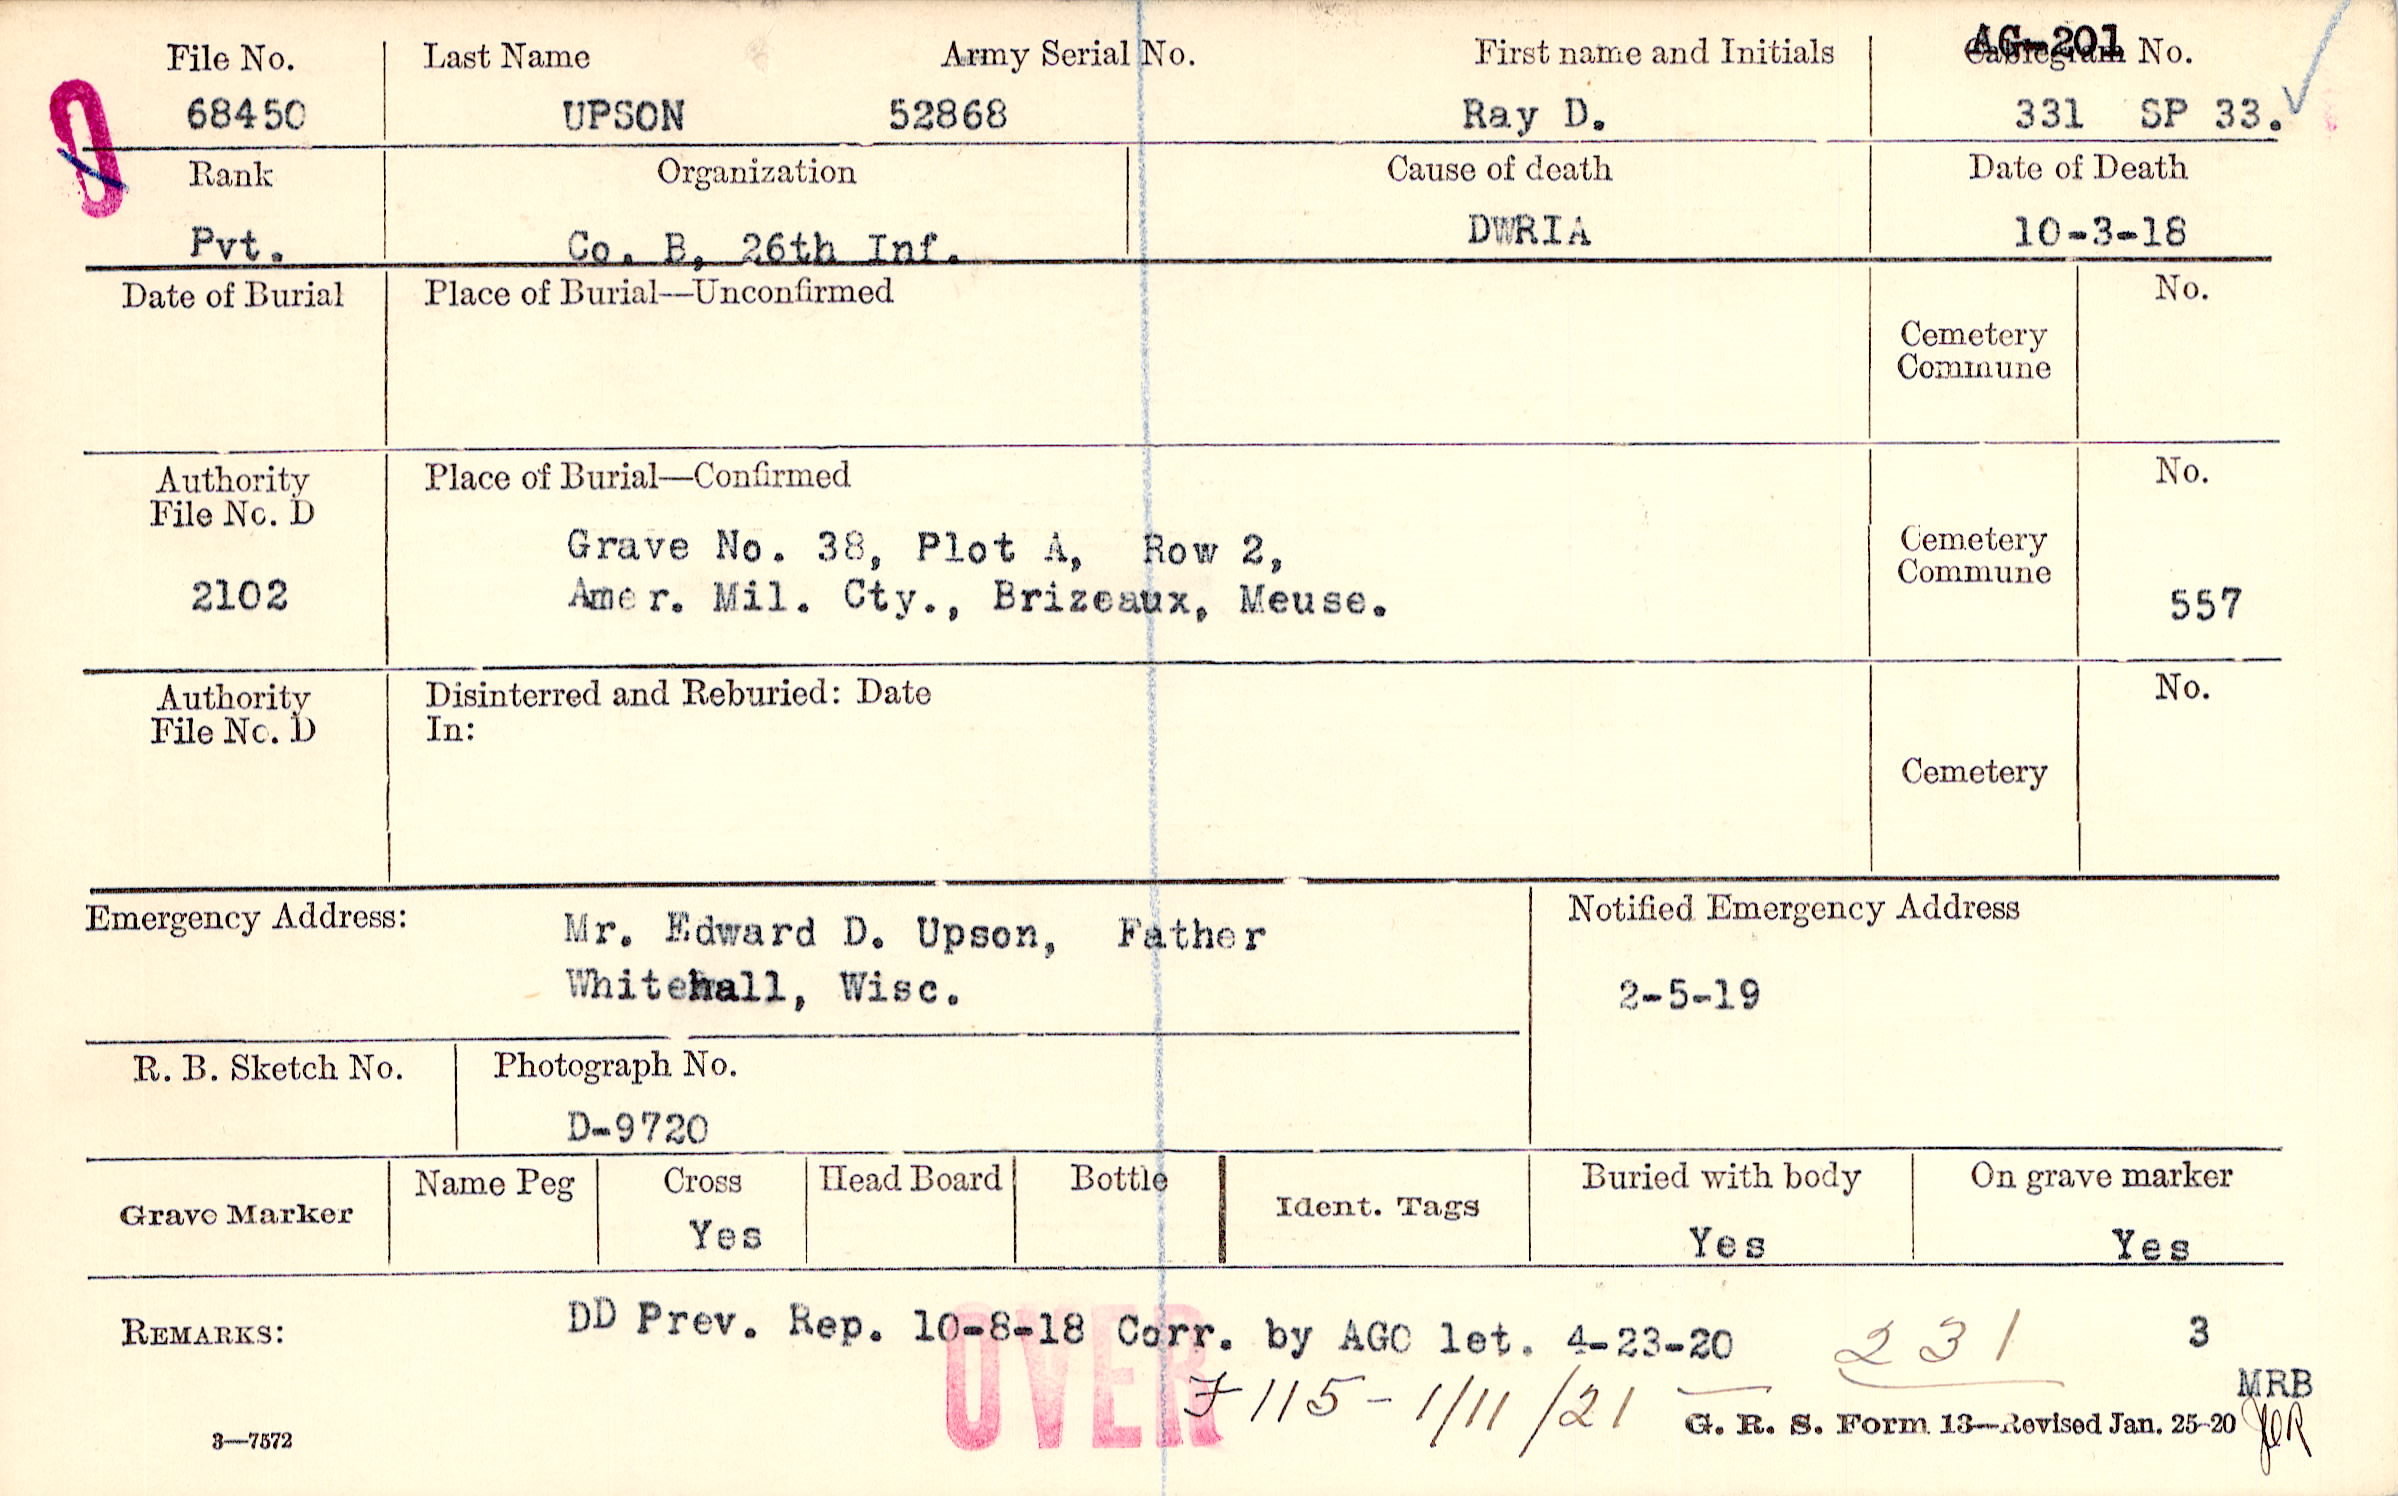 File No. Last Name Army Serial No. First name and Initials AG-201 Cablegram No.
68450 UPSON 52868 Ray D. 331 SP 33.
Rank Organization Cause of death Date of Death
Pvt. Co. B, 26th Inf. DWRIA 10-3-18
Date of Burial Place of Burial—Unconfirmed No.
Cemetery
Commune
Authority Place of Burial—Confirmed No.
File No. D
Grave No. 38, Plot A, Row 2, Cemetery
Commune
2102 Amer. Mil. Cty., Brizeaux, Meuse. 557
Authority Disinterred and Reburied: Date No.
File No. D In:
Cemetery
Emergency Address: Mr. Edward D. Upson, Father Notified Emergency Address
Whitehall, Wisc. 2-5-19
R. B. Sketch No. Photograph No.
D-9720
Grave Marker Name Peg Cross Head Board Bottle Ident. Tags Buried with body On grave marker
Yes Yes Yes
REMARKS: DD Prev. Rep. 10-8-18 Corr. by AGO let. 4-23-20 231 3
OVER
F 115 - 1/11/21 MRB
3—7572 G. R. S. Form 13—Revised Jan. 25-20